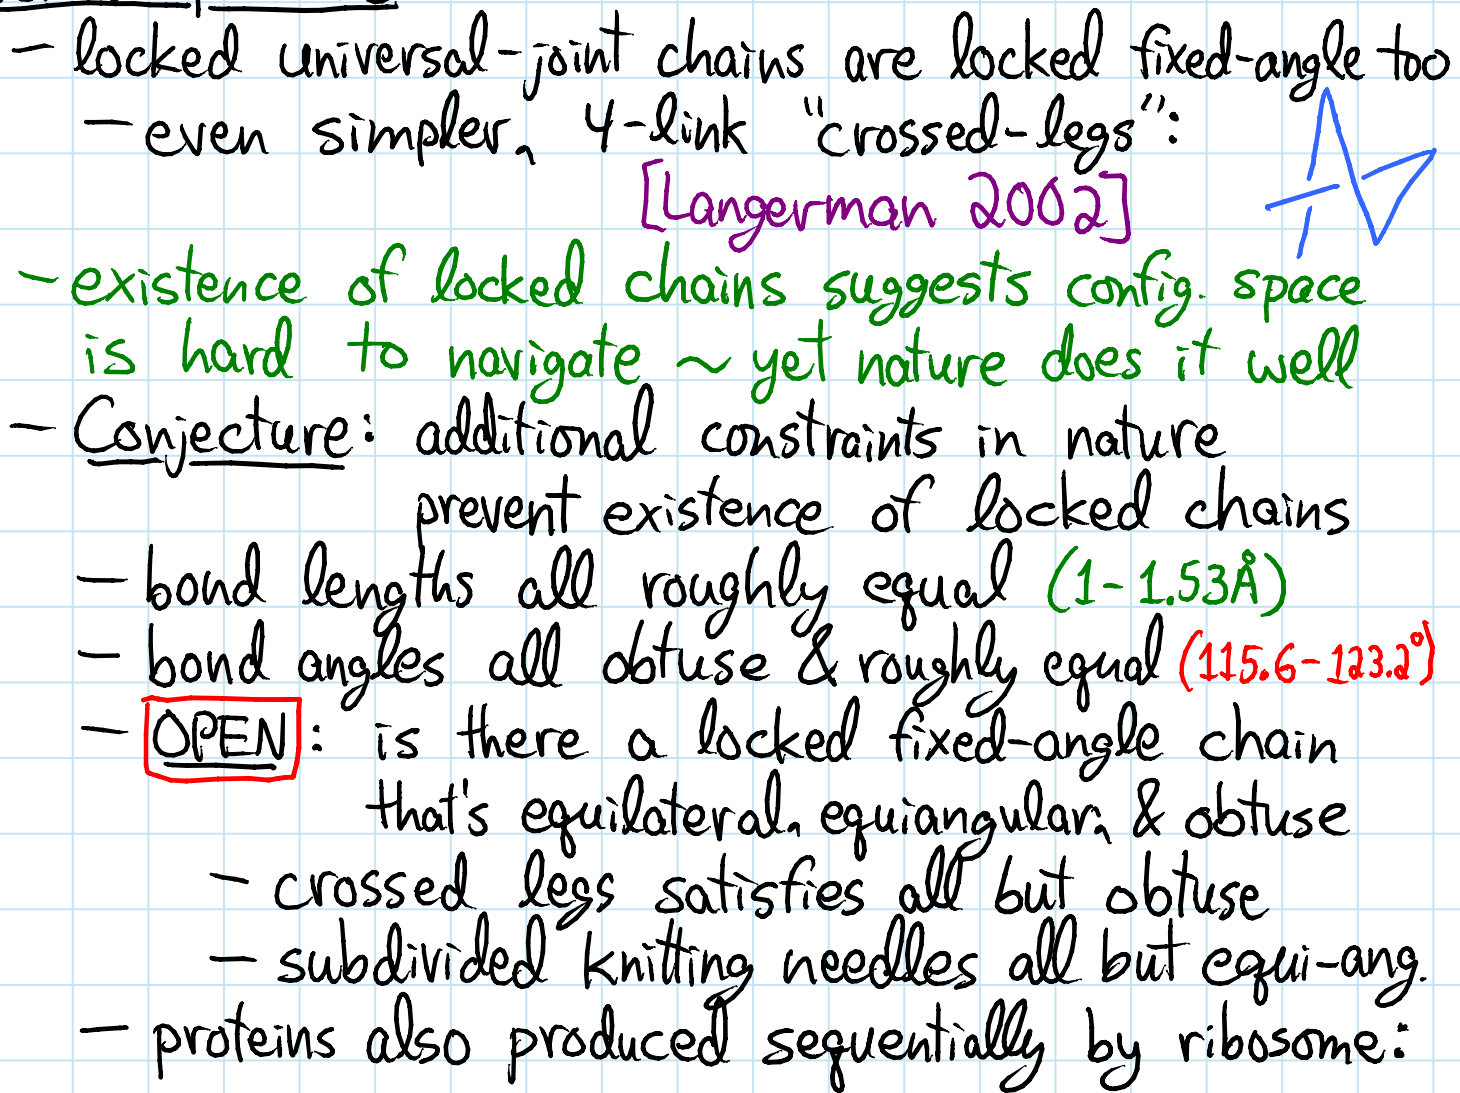 - locked universal-joint chains are locked fixed-angle too
- even simpler, 4-link "crossed-legs":
[Langerman 2002]
- existence of locked chains suggests config. space
is hard to navigate ~ yet nature does it well
- Conjecture: additional constraints in nature
prevent existence of locked chains
- bond lengths all roughly equal (1-1.53Å)
- bond angles all obtuse & roughly equal (115.6-123.2°)
- OPEN: is there a locked fixed-angle chain
that's equilateral, equiangular, & obtuse
- crossed legs satisfies all but obtuse
- subdivided knitting needles all but equi-ang.
- proteins also produced sequentially by ribosome: